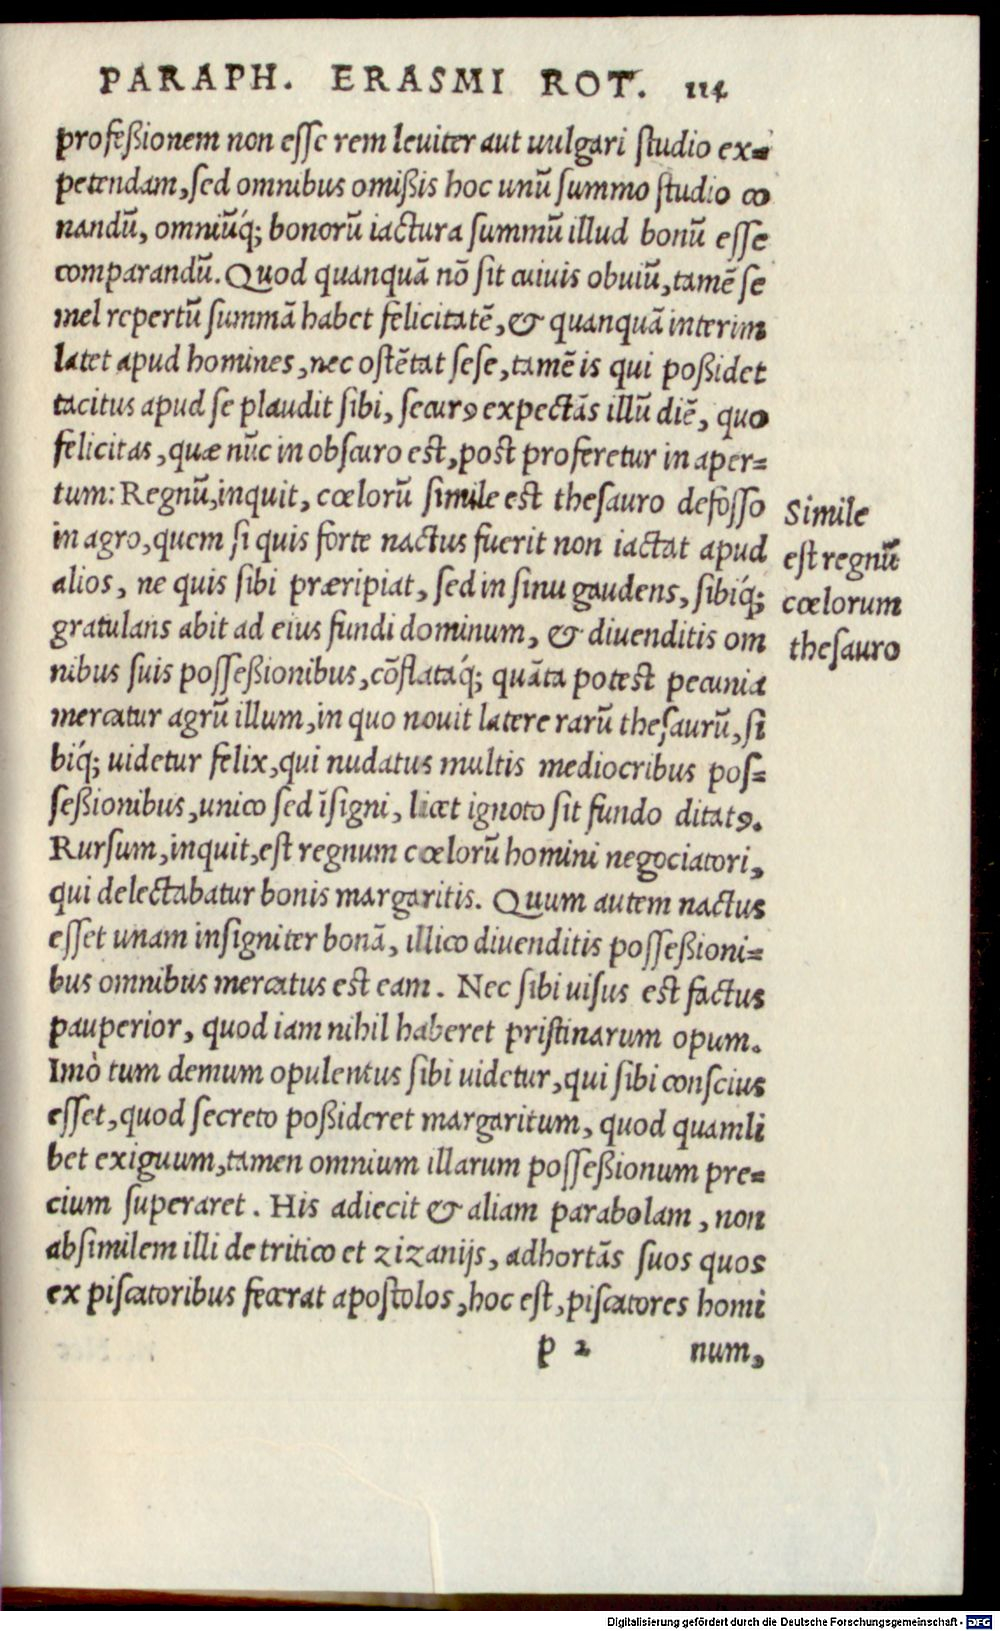 PARAPH. ERASMI ROT. 114
profeßionem non esse rem leuiter aut uulgari studio ex=
petendam, sed omnibus omißis hoc unũ summo studio co
nandũ, omniũq́; bonorũ iactura summũ illud bonũ esse
comparandũ. Quod quanquã nõ sit cuiuis obuiũ, tamẽ se
mel repertũ summã habet felicitatẽ, & quanquã interim
latet apud homines, nec ostẽtat sese, tamẽ is qui poßidet
tacitus apud se plaudit sibi, securꝯ expectãs illũ diẽ, quo
felicitas, quæ nũc in obscuro est, post proferetur in aper=
tum: Regnũ, inquit, cœlorũ simile est thesauro defosso
in agro, quem si quis forte nactus fuerit non iactat apud
alios, ne quis sibi præripiat, sed in sinu gaudens, sibiq́;
gratulans abit ad eius fundi dominum, & diuenditis om
nibus suis posseßionibus, cõflataq́; quãta potest pecunia
mercatur agrũ illum, in quo nouit latere rarũ thesaurũ, si
biq́; uidetur felix, qui nudatus multis mediocribus pos=
seßionibus, unico sed ĩsigni, licet ignoto sit fundo ditatꝯ.
Rursum, inquit, est regnum cœlorũ homini negociatori,
qui delectabatur bonis margaritis. Quum autem nactus
esset unam insigniter bonã, illico diuenditis posseßioni=
bus omnibus mercatus est eam. Nec sibi uisus est factus
pauperior, quod iam nihil haberet pristinarum opum.
Imò tum demum opulentus sibi uidetur, qui sibi conscius
esset, quod secreto poßideret margaritum, quod quamli
bet exiguum, tamen omnium illarum posseßionum pre=
cium superaret. His adiecit & aliam parabolam, non
absimilem illi de tritico et zizanijs, adhortãs suos quos
ex piscatoribus fecerat apostolos, hoc est, piscatores homi
p 2 num,
Simile
est regnũ
cœlorum
thesauro
Digitalisierung gefördert durch die Deutsche Forschungsgemeinschaft - DFG